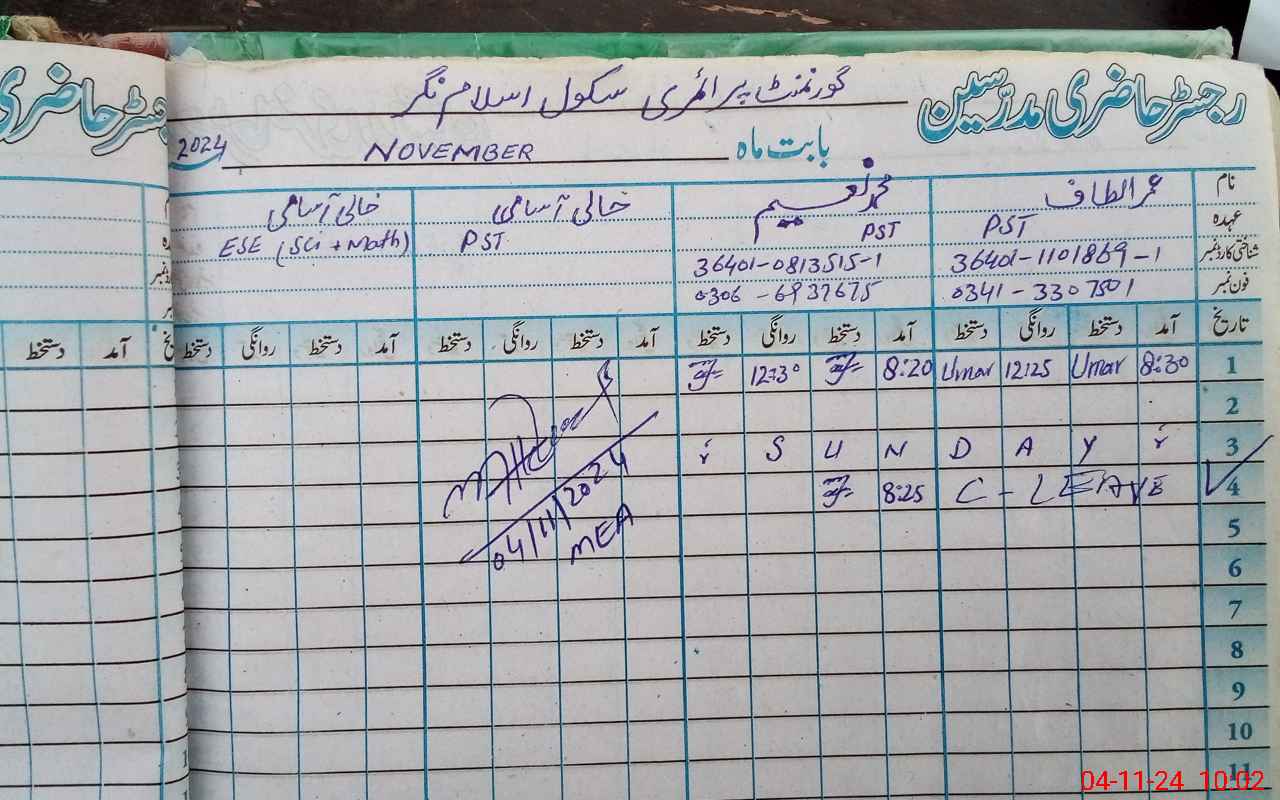 رجسٹر حاضری مدرسین
گورنمنٹ پرائمری سکول اسلام نگر
بابت ماہ NOVEMBER 2024
نام عمر الطاف محمد نعیم خالی آسامی خالی آسامی
عہدہ PST PST PST ESE (Sci + Math)
شناختی کارڈ نمبر 36401-1101869-1 36401-0813515-1
فون نمبر 0341-3307501 0306-6937675
تاریخ آمد دستخط روانگی دستخط آمد دستخط روانگی دستخط آمد دستخط روانگی دستخط آمد دستخط روانگی دستخط آمد دستخط
1 8:30 Umar 12:25 Umar 8:20 12:30
2
3 S U N D A Y
4 C-LEAVE 8:25
04/11/2024
MEA
5
6
7
8
9
10
11
04-11-24 10:02